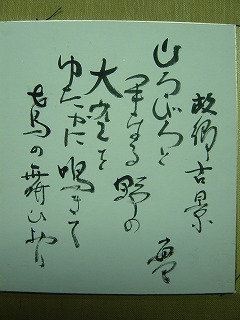 故郷古景
ひろびろと
なる野の
大空を
ゆたかに鳴きて
鳶の舞ひをり